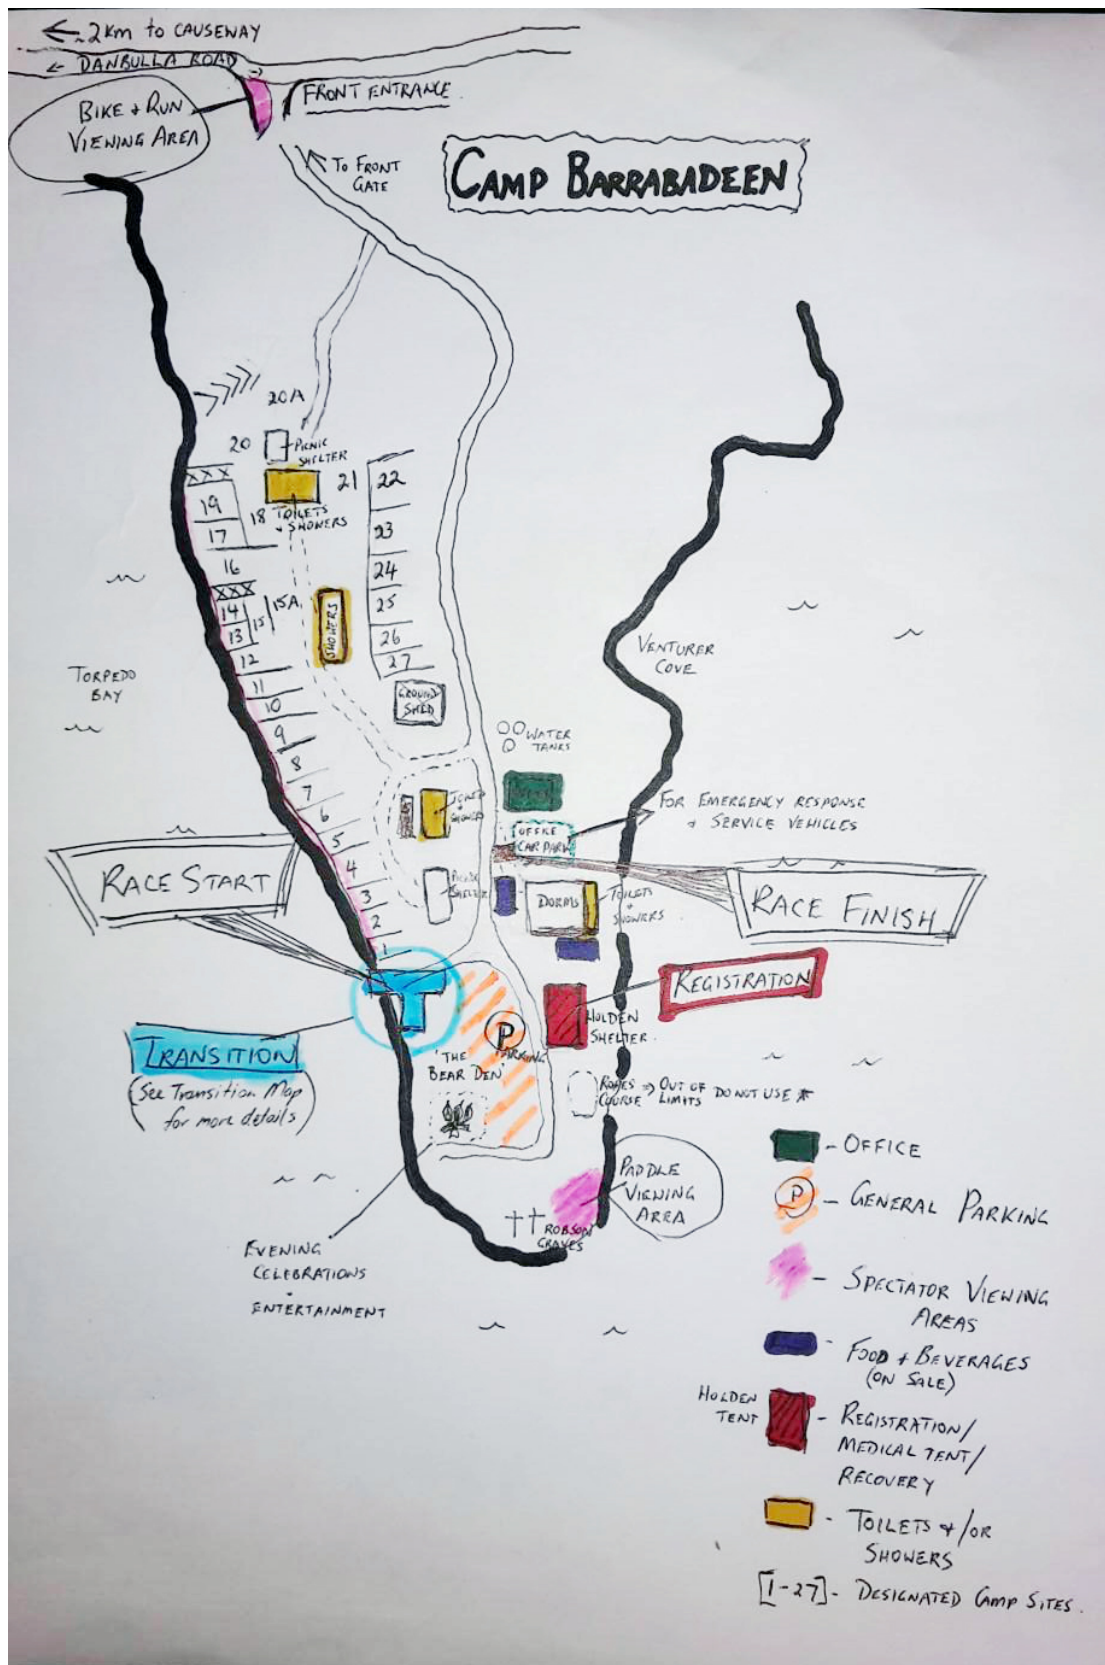 ← ~2Km to CAUSEWAY
← DANBULLA ROAD →
BIKE + RUN
VIEWING AREA
FRONT ENTRANCE
TO FRONT
GATE
CAMP BARRABADEEN
20A
20
PICNIC
SHELTER
21
22
XXX
19
18
TOILETS
+ SHOWERS
17
23
16
24
XXX
14
15
15A
25
13
SHOWERS
26
12
27
VENTURER
COVE
TORPEDO
BAY
11
GROUND
SHED
10
9
WATER
TANKS
8
7
6
FOR EMERGENCY RESPONSE
+ SERVICE VEHICLES
5
OFFICE
CAR PARK
RACE START
4
3
PICNIC
SHELTER
DORMS
TOILETS
+
SHOWERS
RACE FINISH
2
1
REGISTRATION
HOLDEN
SHELTER
P
PARKING
TRANSITION
(SEE TRANSITION MAP
for more details)
'THE
BEAR DEN'
ROPES
COURSE
⇒ OUT OF
LIMITS
DO NOT USE *
PADDLE
VIEWING
AREA
ROBSON
GRAVES
EVENING
CELEBRATIONS
+
ENTERTAINMENT
- OFFICE
P - GENERAL PARKING
- SPECTATOR VIEWING
AREAS
- FOOD + BEVERAGES
(ON SALE)
HOLDEN
TENT
- REGISTRATION/
MEDICAL TENT/
RECOVERY
- TOILETS +/OR
SHOWERS
[1-27] - DESIGNATED CAMP SITES.